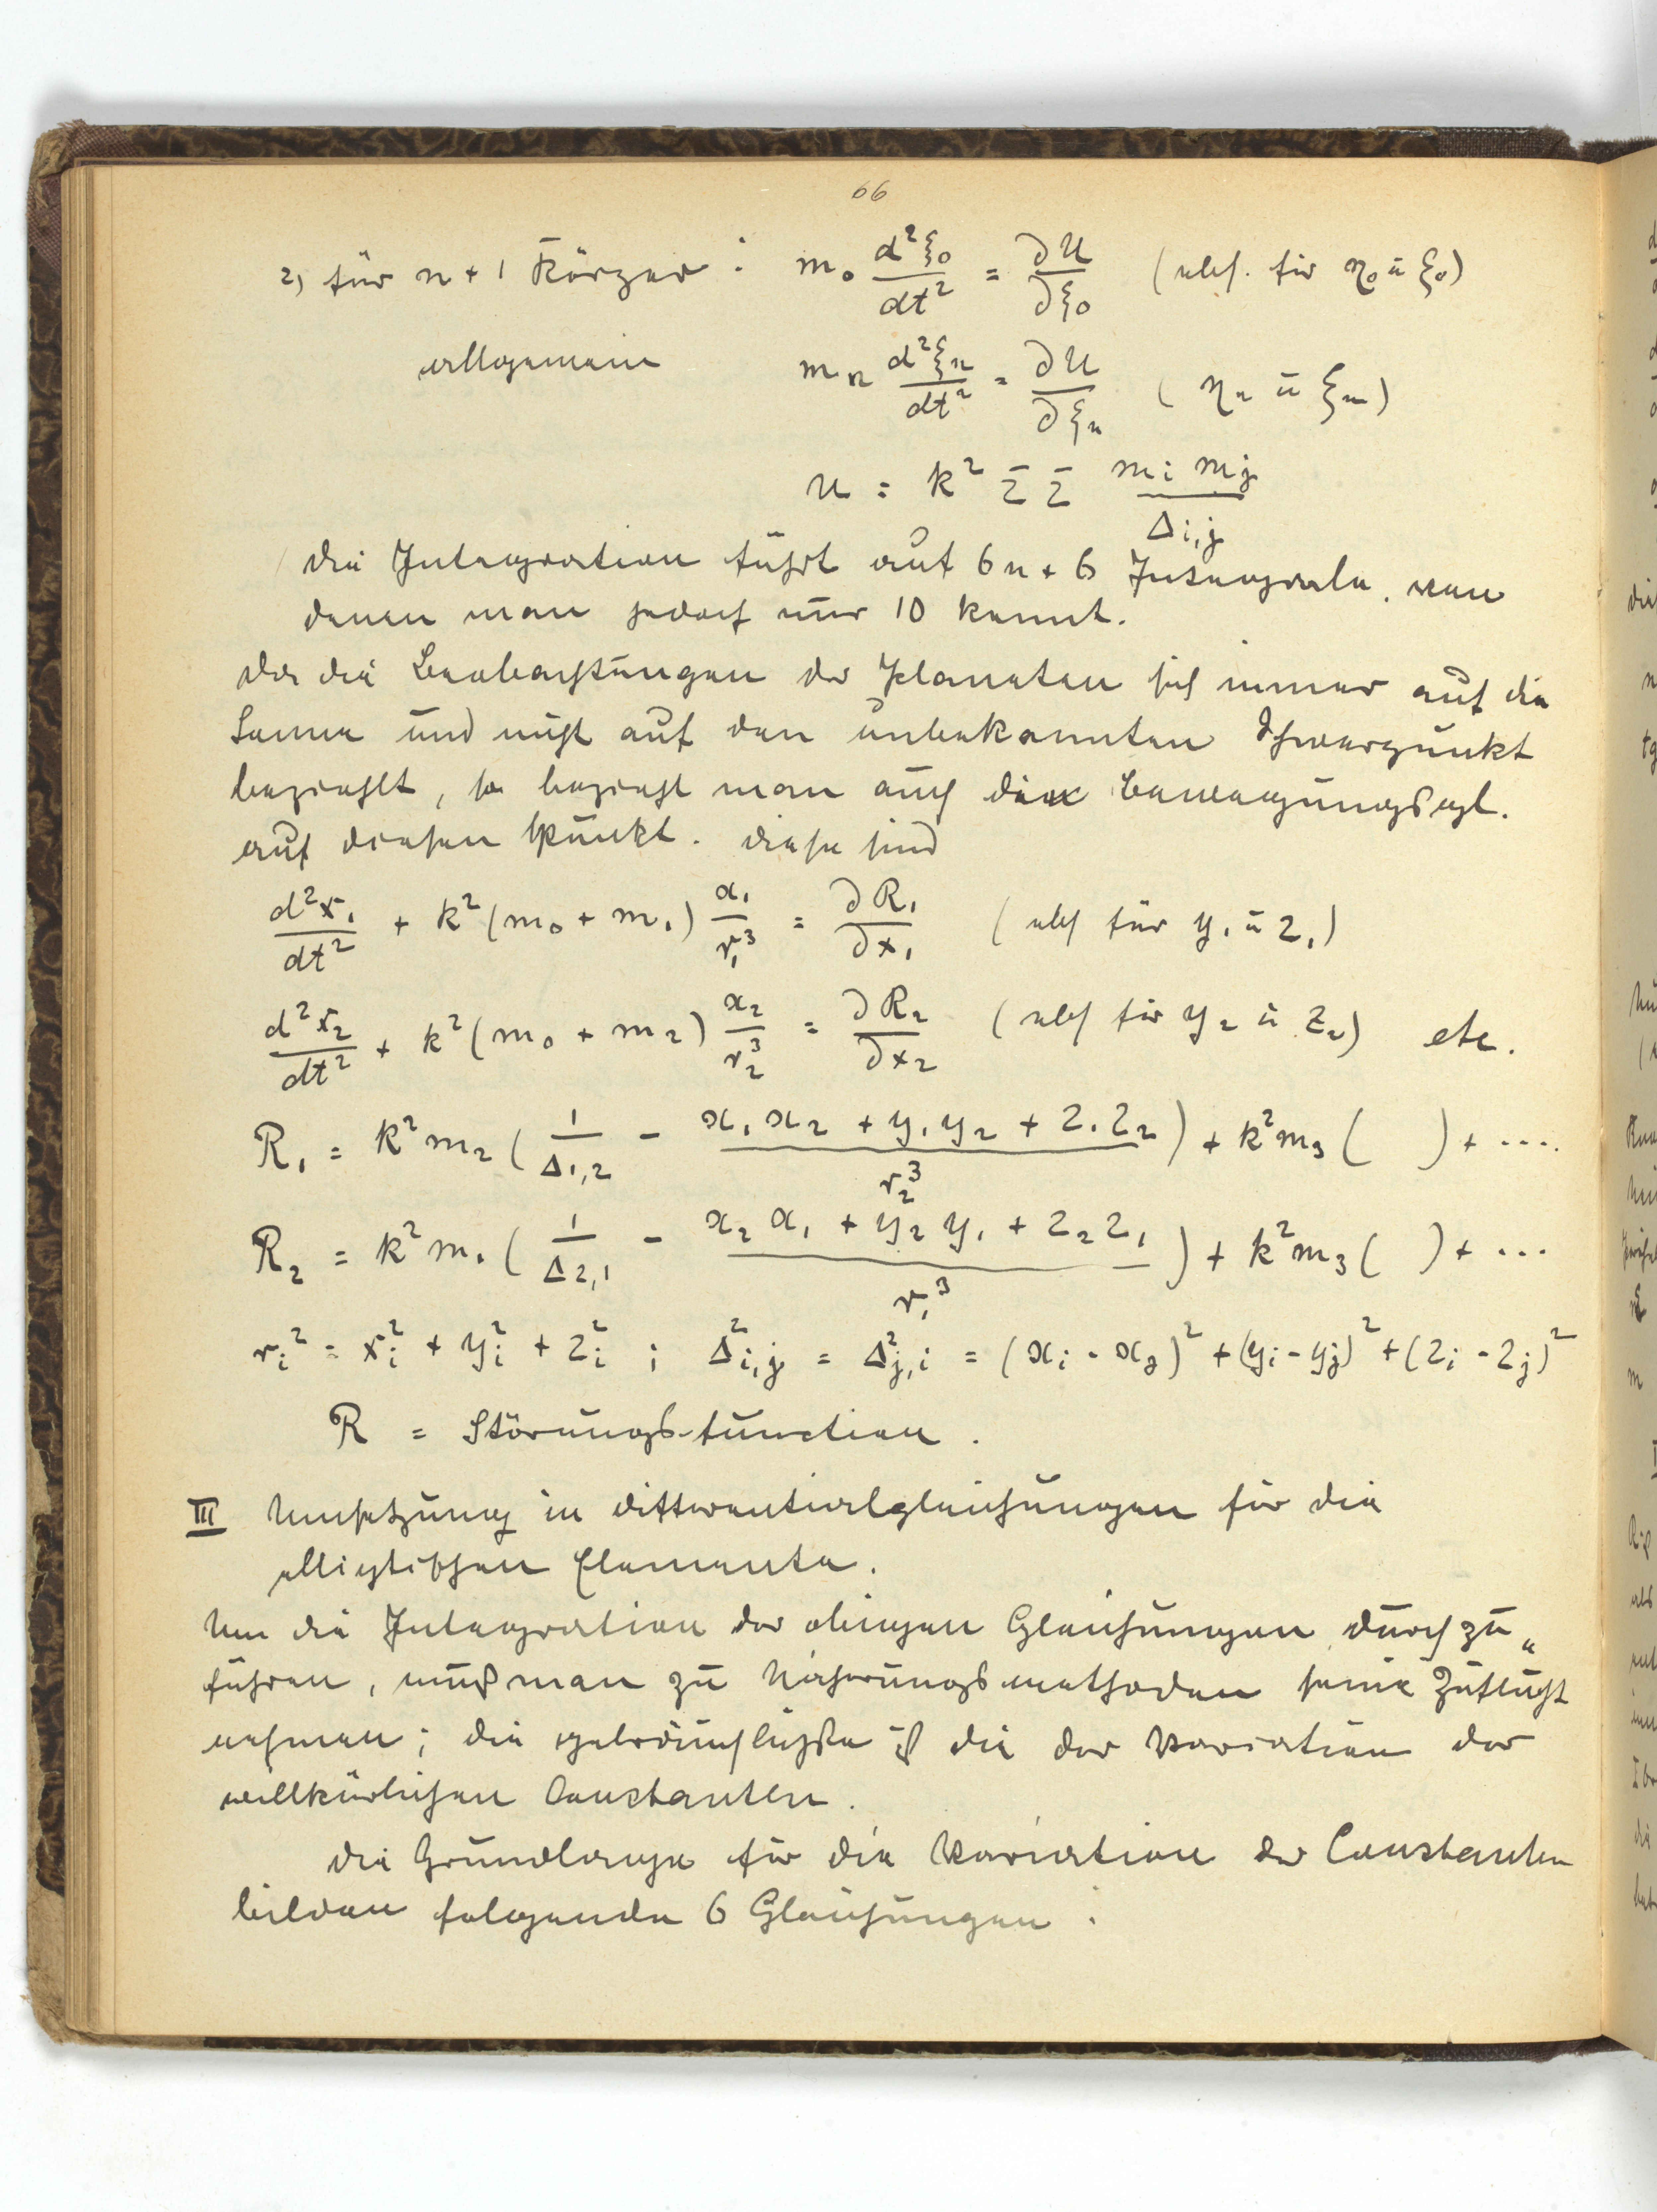 66
2) für n + 1 Körper : m₀ d²ξ₀/dt² = ∂U/∂ξ₀ (ebs. für η₀ ū ζ₀)
allgemein mₙ d²ξₙ/dt² = ∂U/∂ξₙ ( ηₙ ū ζₙ)
U = k² Σ Σ mᵢ mⱼ / Δi,j
Die Integration führt auf 6n + 6 Integrale, von
denen man jedoch nur 10 kennt.
Da die Beobachtungen der Planeten sich immer auf die
Sonne und nicht auf den unbekannten Schwerpunkt
bezieht, so bezieht man auch die Bewegungsgl.
auf diesen Punkt. Diese sind
d²x₁/dt² + k²(m₀ + m₁) x₁/r₁³ = ∂R₁/∂x₁ (ebs für y₁ ū z₁)
d²x₂/dt² + k²(m₀ + m₂) x₂/r₂³ = ∂R₂/∂x₂ (ebs für y₂ ū z₂) etc.
R₁ = k²m₂ ( 1/Δ1,2 - x₁x₂ + y₁y₂ + z₁z₂ / r₂³ ) + k²m₃ ( ) + ....
R₂ = k²m₁ ( 1/Δ2,1 - x₂x₁ + y₂y₁ + z₂z₁ / r₁³ ) + k²m₃ ( ) + ...
rᵢ² = xᵢ² + yᵢ² + zᵢ² ; Δ²i,j = Δ²j,i = (xᵢ - xⱼ)² + (yᵢ - yⱼ)² + (zᵢ - zⱼ)²
R = Störungsfunction.
III Umsetzung in Differentialgleichungen für die
elliptischen Elemente.
Um die Integration der obigen Gleichungen durchzu„
führen, muß man zu Näherungsmethoden seine Zuflucht
nehmen; die gebräuchlichste ist die der Variation der
willkürlichen Constanten.
Die Grundlage für die Variation der Constanten
bilden folgende 6 Gleichungen :